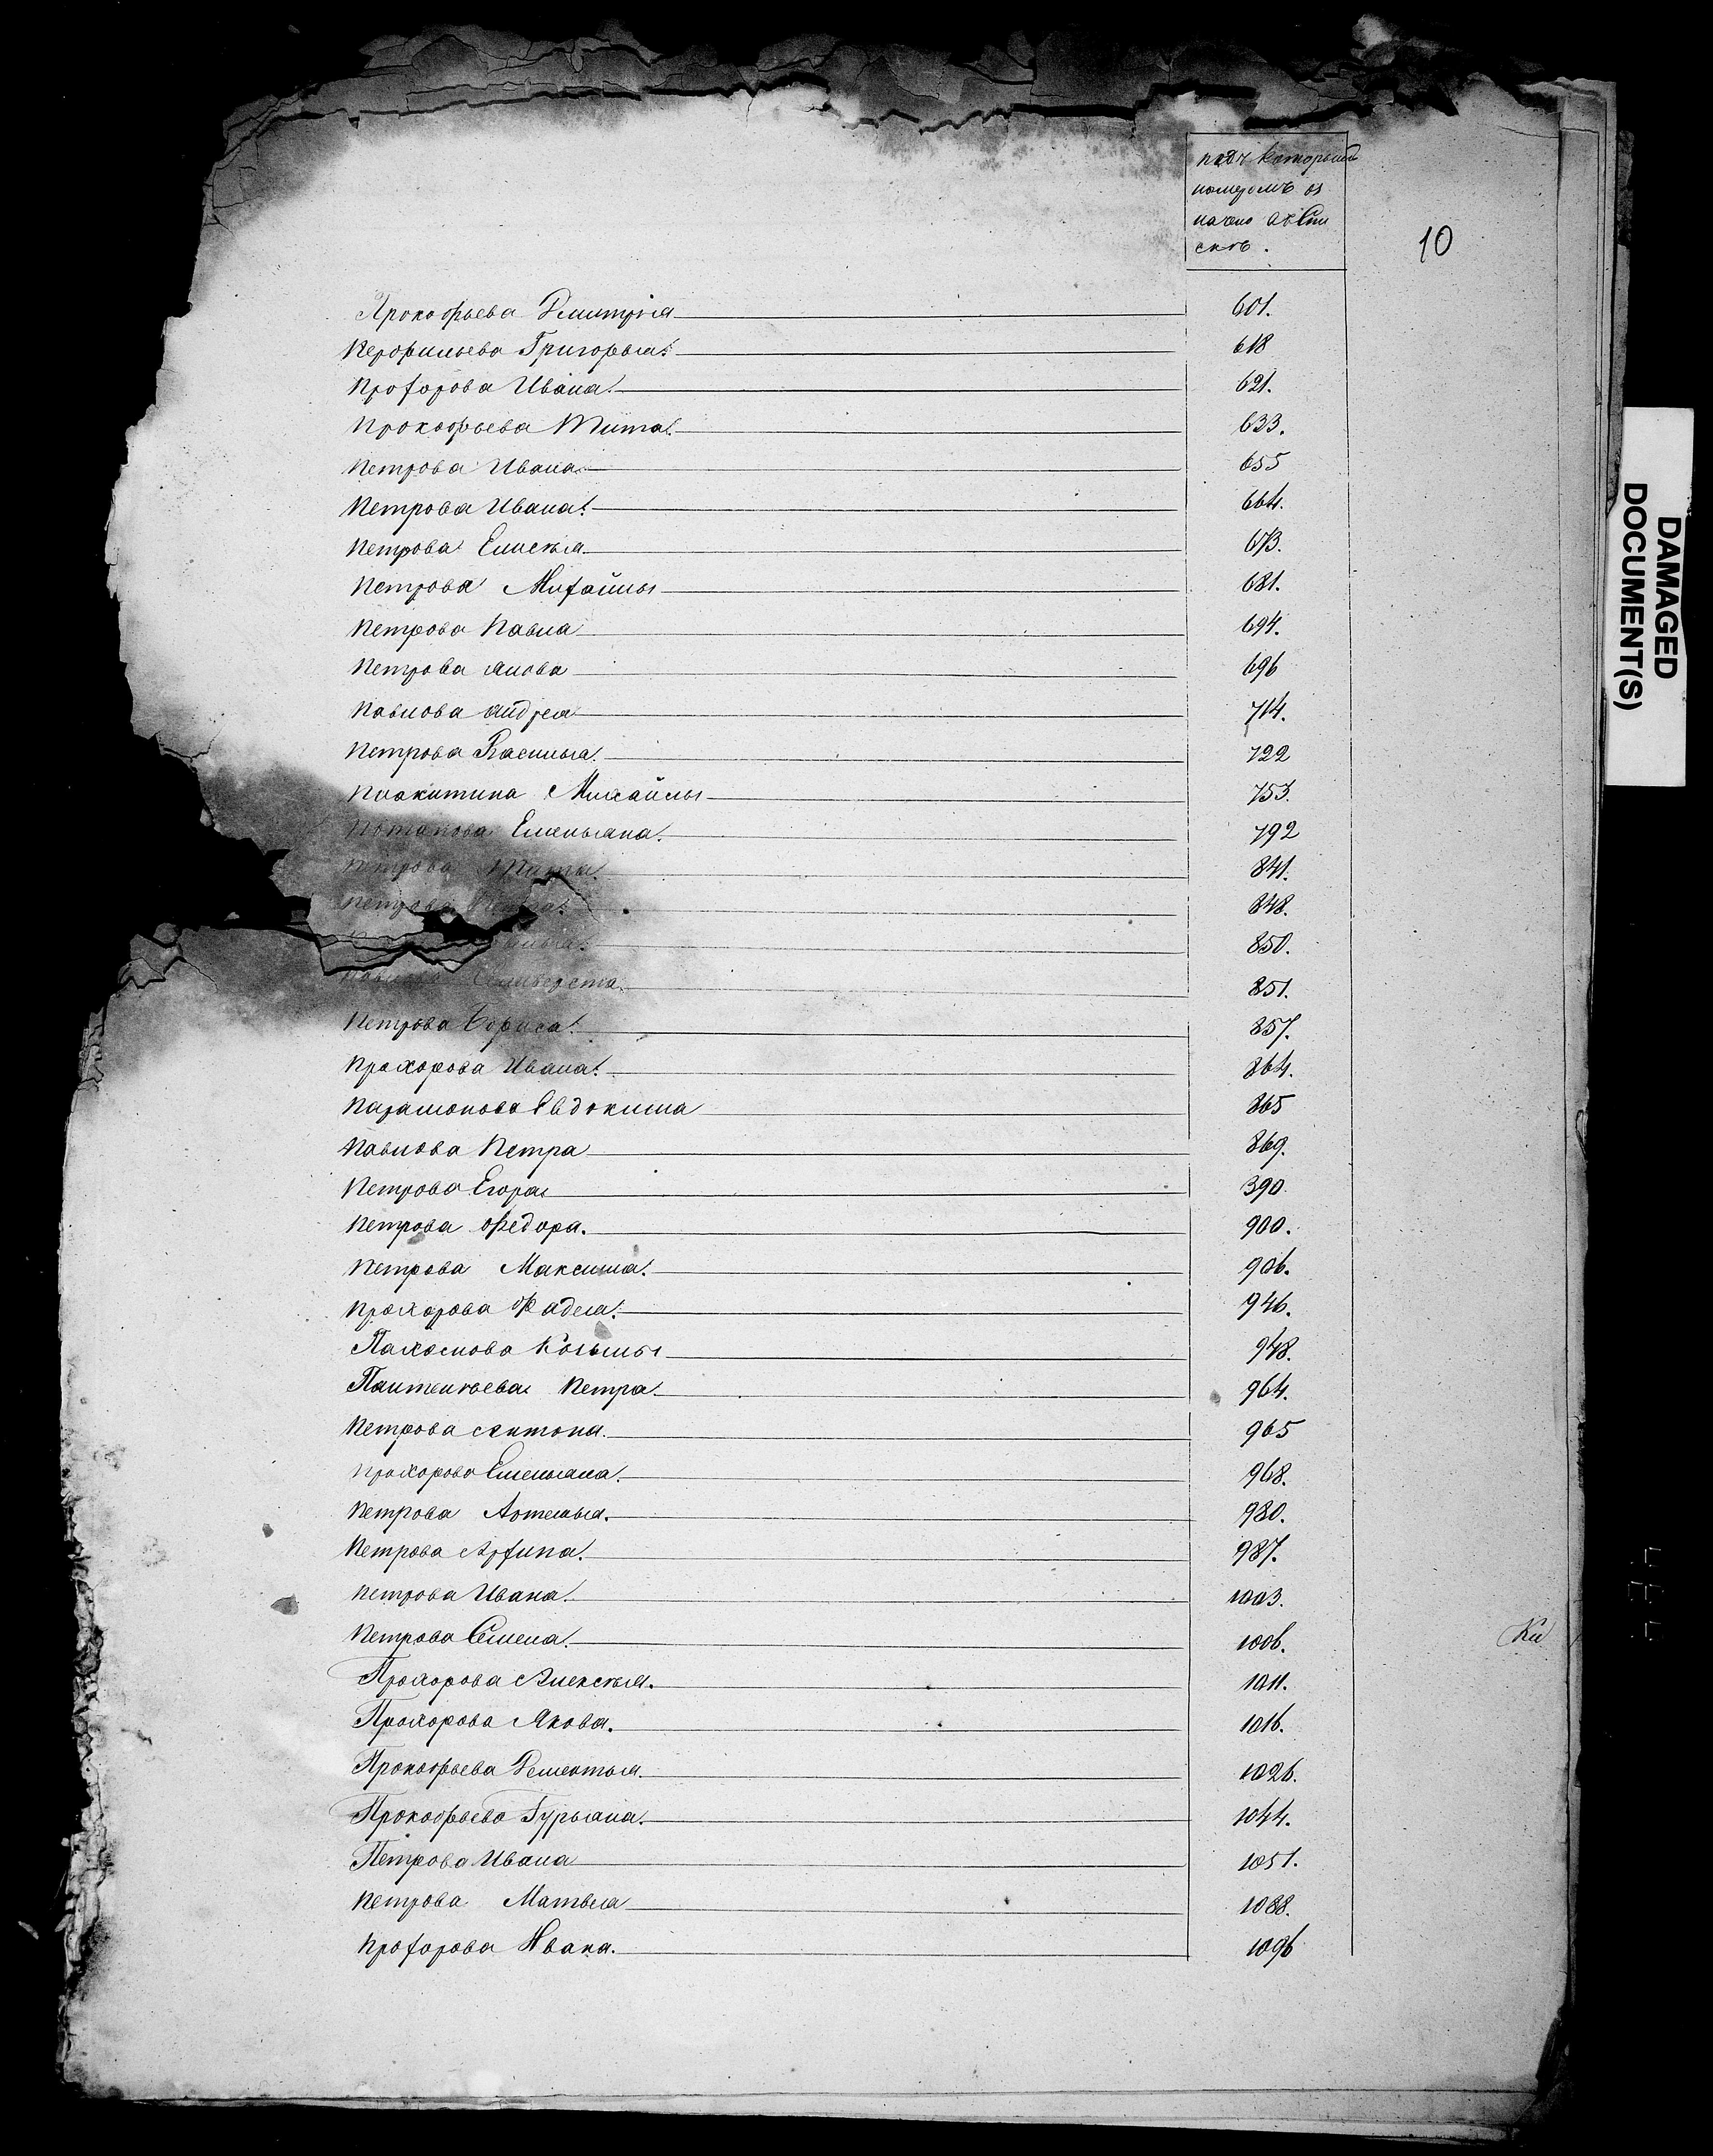 подъ которымъ
номеромъ оз
начено въ Спи
скѣ.
10
Прокофьева Дмитрія 601.
Перфильева Григорья 618
Прохорова Ивана 621.
Прокофьева Тита 633.
Петрова Ивана 655
Петрова Ивана 664.
Петрова Елисѣя 673.
Петрова Михайлы 681.
Петрова Павла 694.
Петрова 696
Павлова Андрея 714.
Петрова Василья 722
Михайлы 753.
Потапова Емельяна 792
Петрова Никиты 841.
Петрова 848.
850.
Селиверста 851.
Петрова Бориса 857.
Прохорова Ивана 864.
Парамонова Евдокима 865
Павлова Петра 869.
Петрова Егора 890
Петрова Федора. 900.
Петрова Максима. 906.
Прохорова Фадея. 946.
Пахомова Козьмы 948.
Пантелѣева Петра 964.
Петрова Антона. 965
Прохорова Емельяна. 968.
Петрова Артемья. 980.
Петрова Архипа. 987.
Петрова Ивана. 1003.
Петрова Семена. 1006.
Прохорова Алексѣя. 1011.
Прохорова Якова. 1016.
Прокофьева Дементья. 1026.
Прокофьева Гурьяна. 1044.
Петрова Ивана 1051.
Петрова Матвея 1088.
Прохорова Ивана. 1096
DAMAGED
DOCUMENT(S)